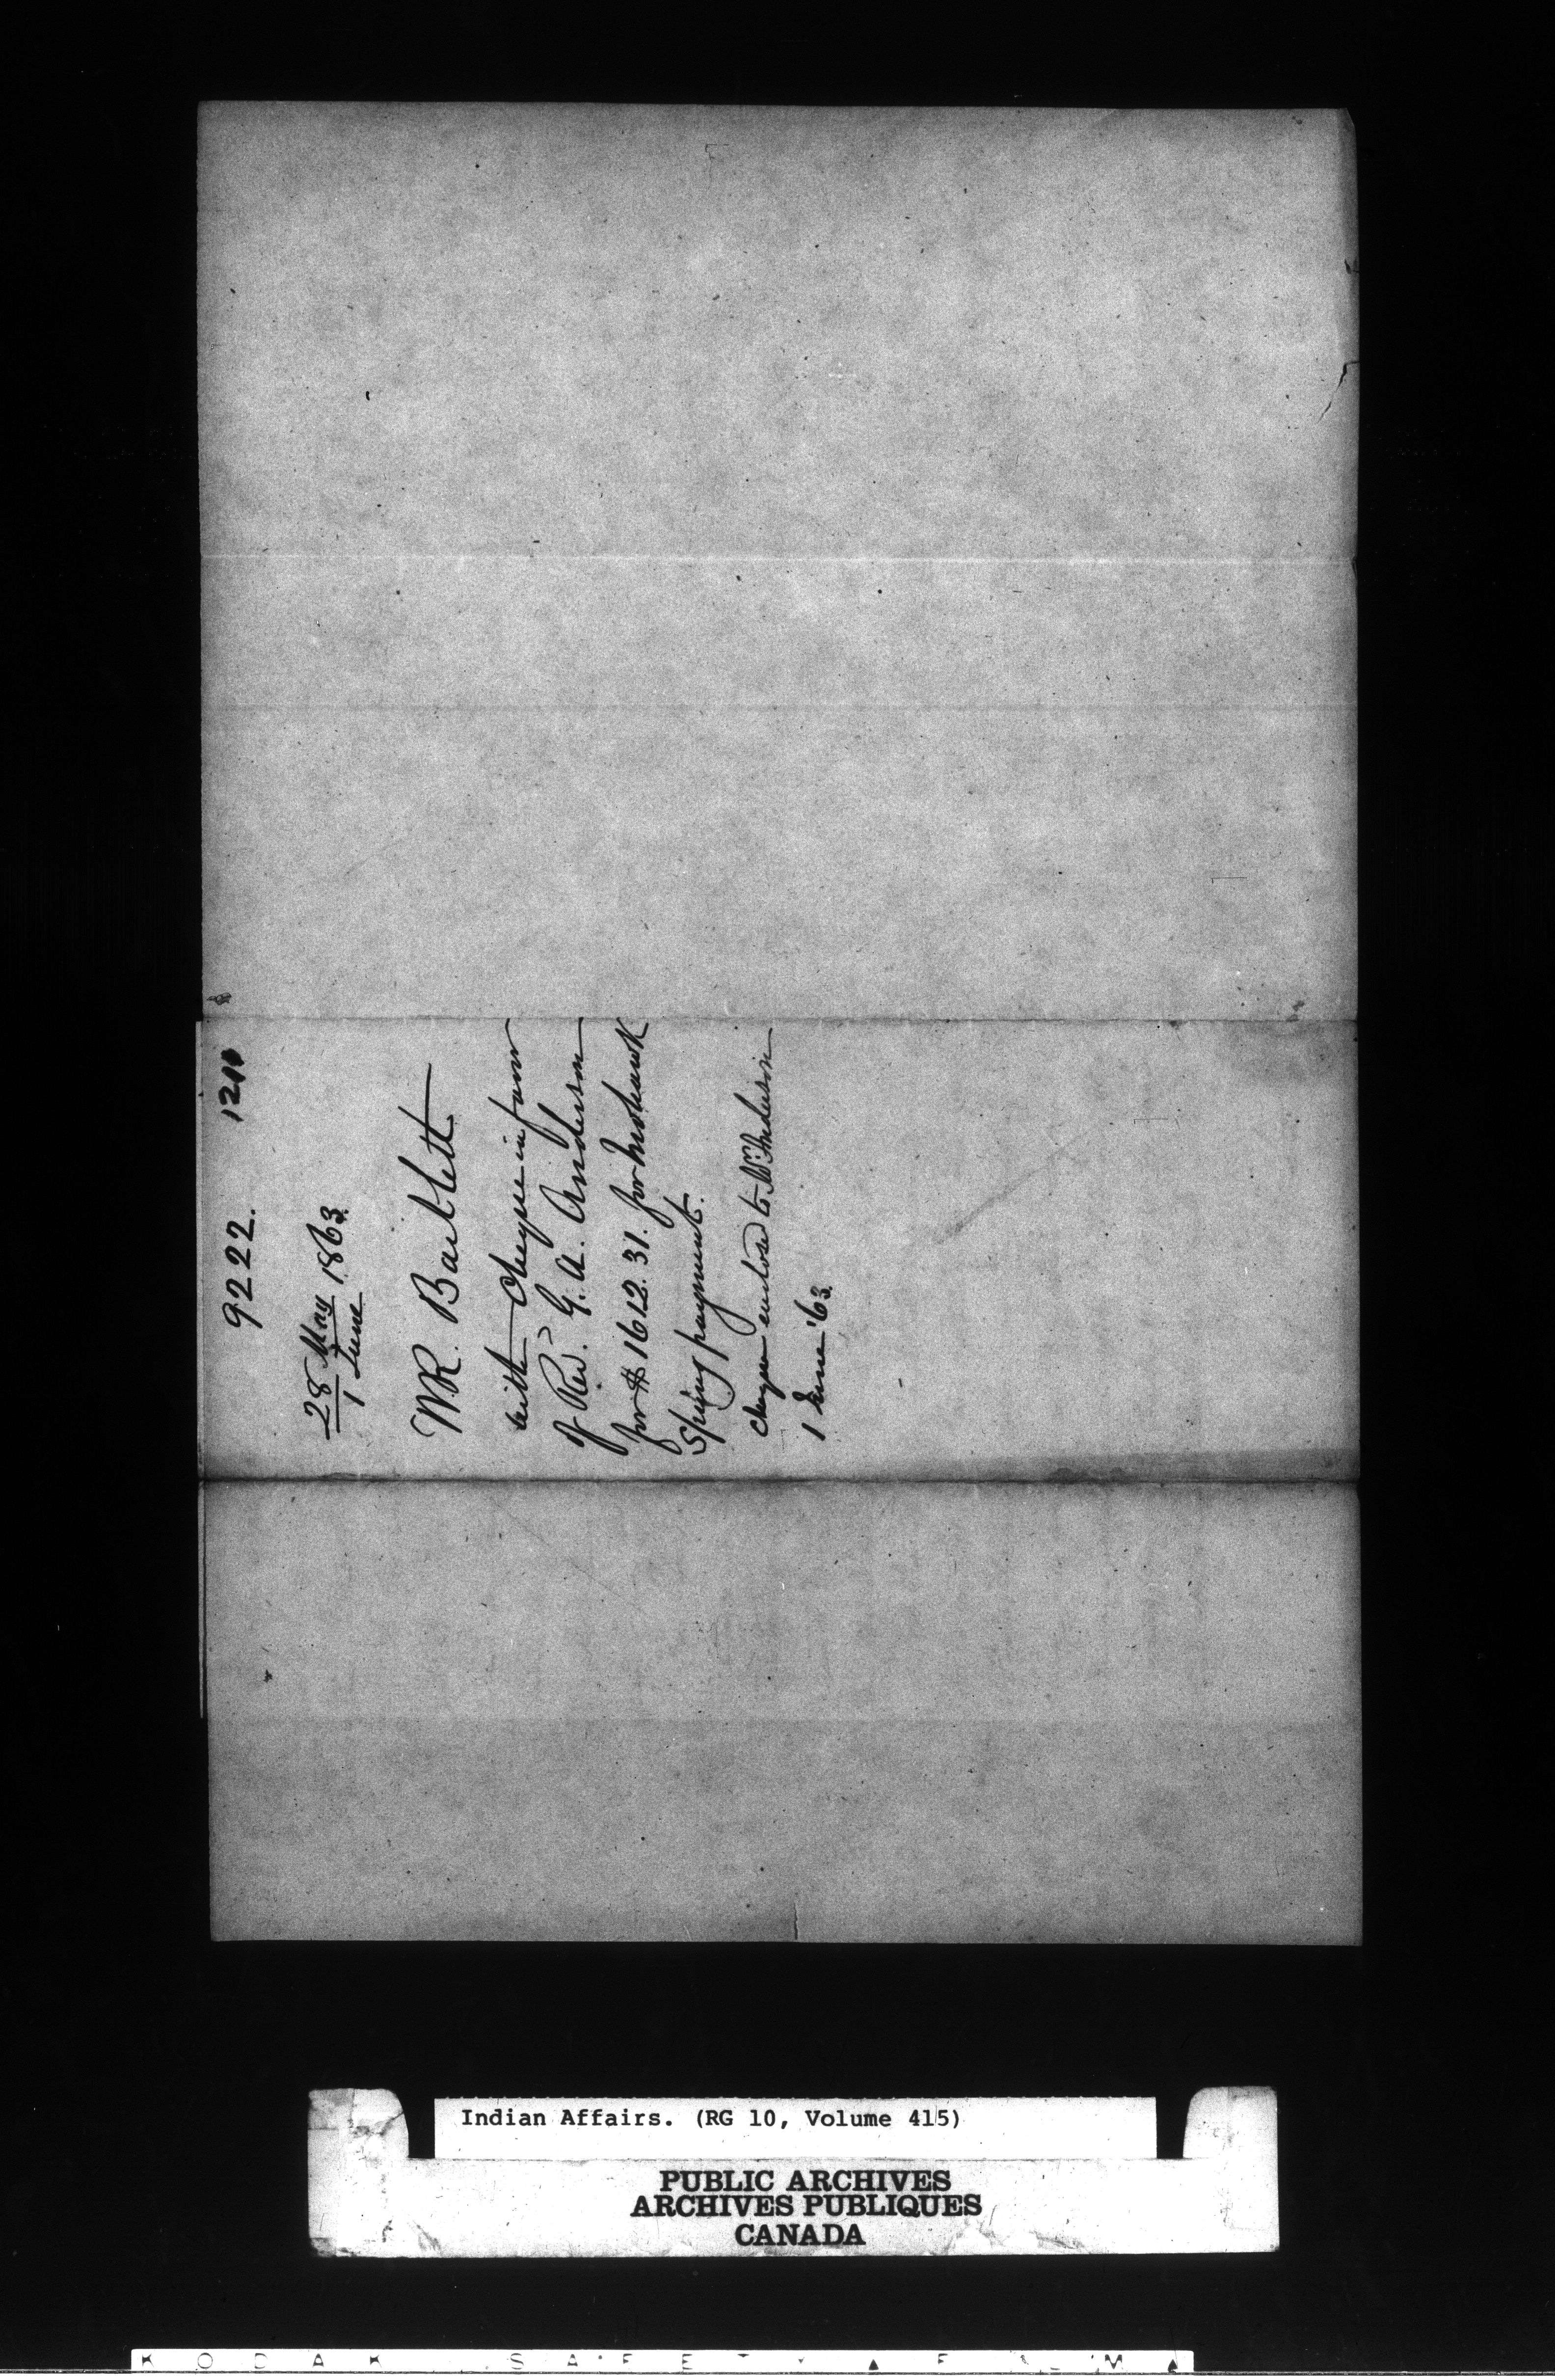 9222. 1210
28 May 1863.
1 June
W.R. Bartlett
with Cheque in favor
of Rev. G. A. Anderson
for $1612.31. for Mohawk
Spring payments.
Cheque enclosed to Mr. Anderson
1 June '63.
Indian Affairs. (RG 10, Volume 415)
PUBLIC ARCHIVES
ARCHIVES PUBLIQUES
CANADA
KODAK SAFETY FILM